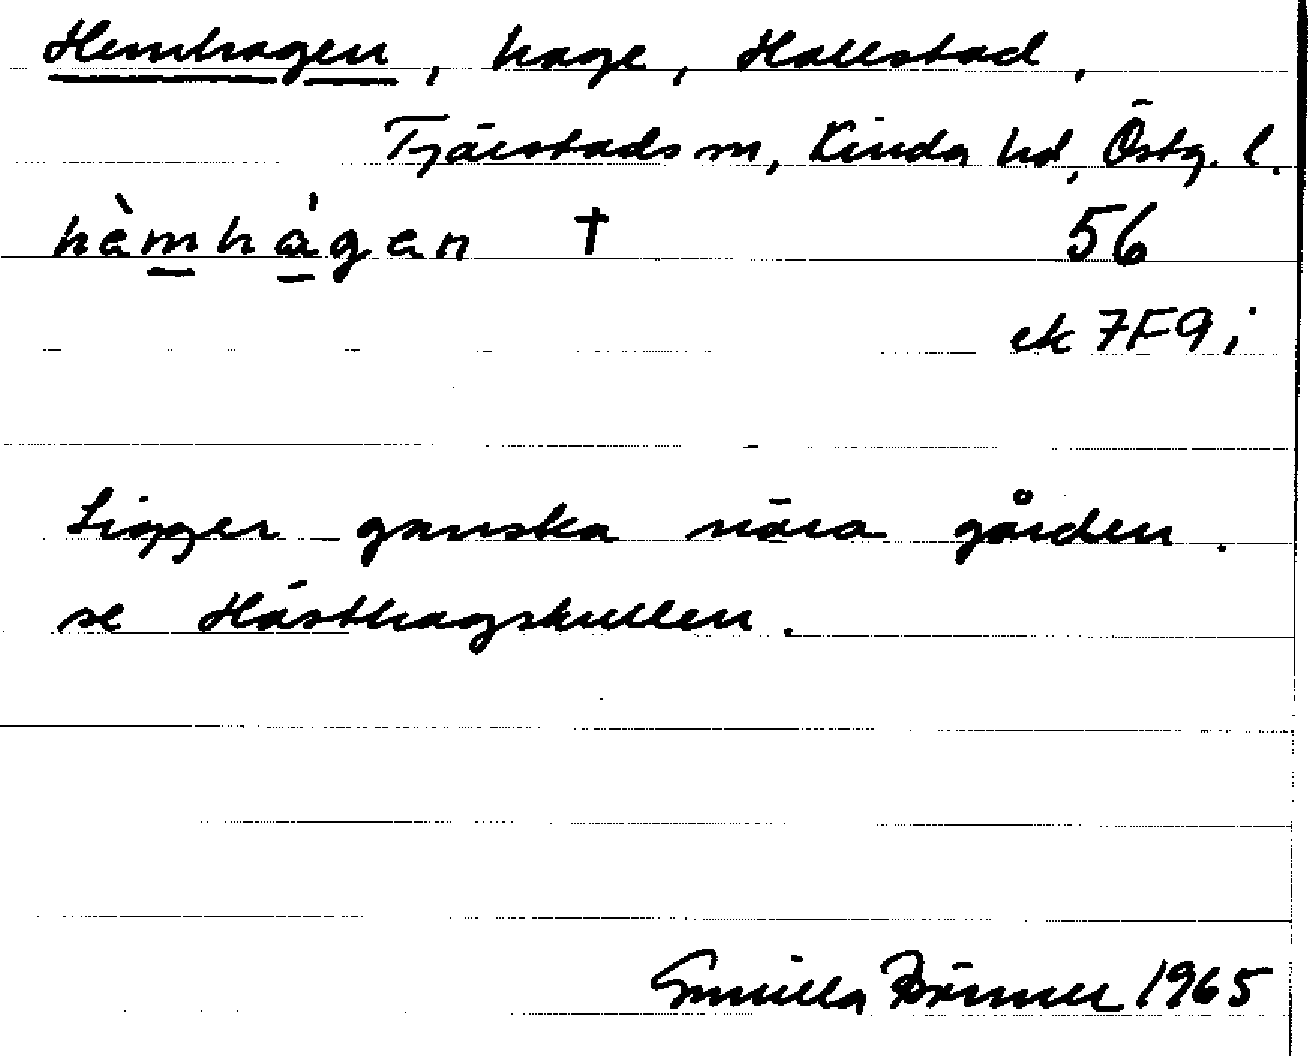 Hemhagen, hage, Hallstad,
Tjärstads sn, Kinda hd, Östg. l.
hèmhágen † 56
ek 7F9i
Ligger ganska nära gården.
se Hästhagskullen.
Gunilla 1965